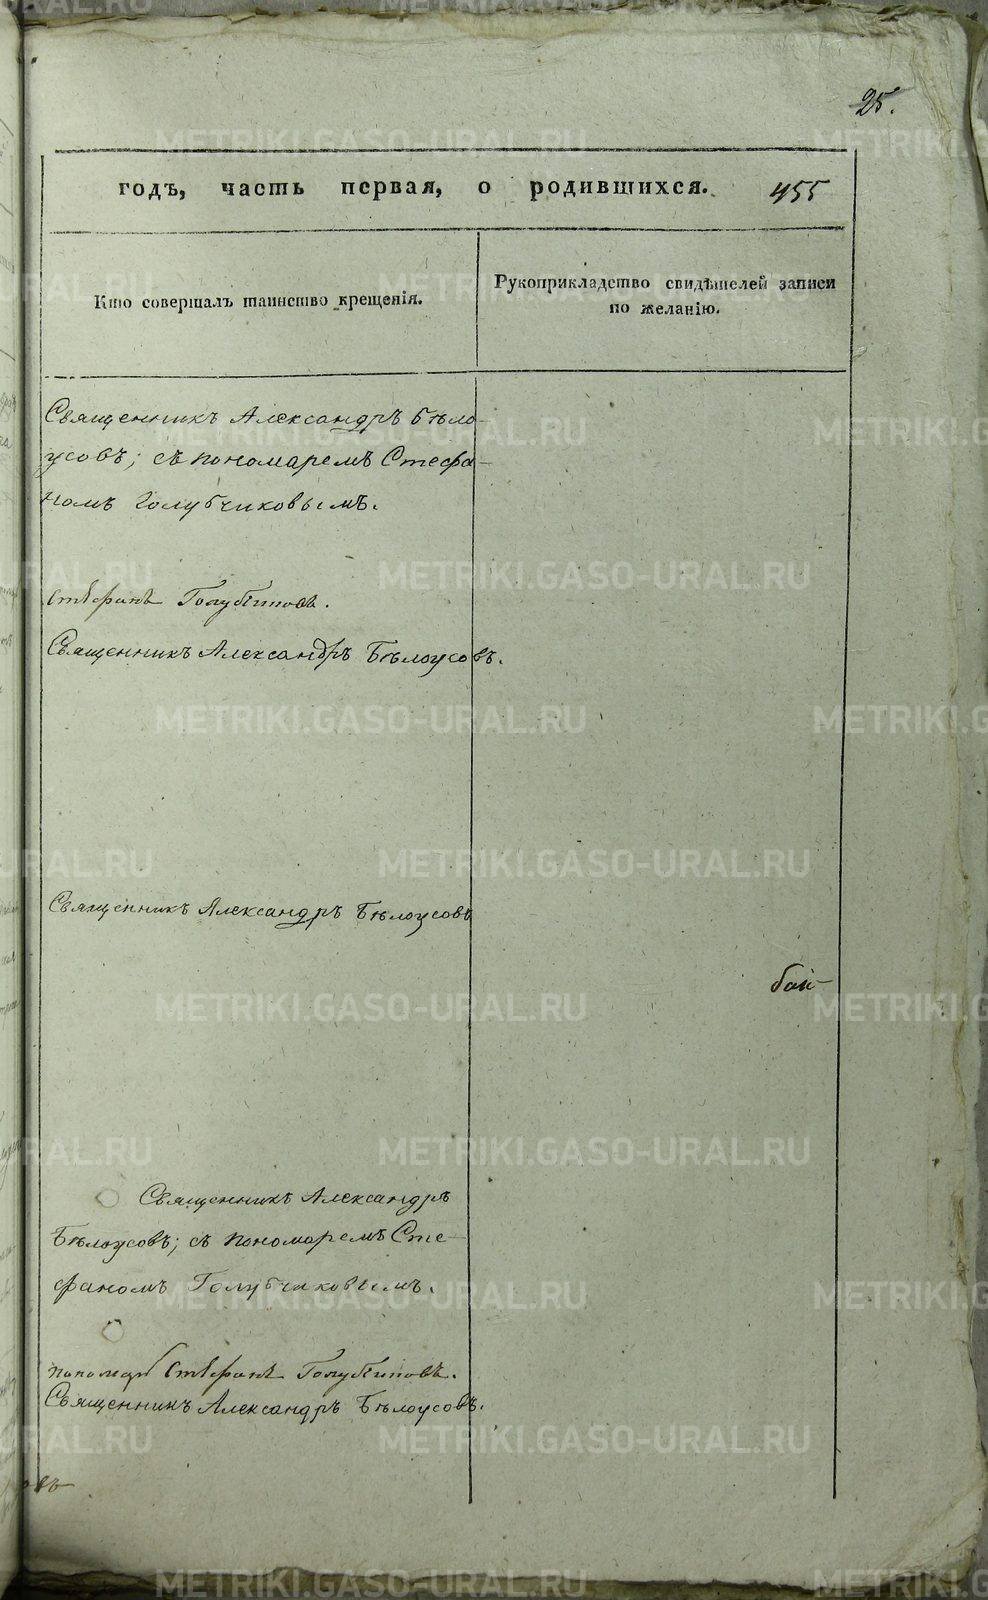 25.
годъ, часть первая, о родившихся. 455
Кто совершалъ таинство крещенія.
Рукоприкладство свидѣтелей записи
по желанію.
Священникъ Александръ Бѣло-
усовъ; съ пономаремъ Стефа-
номъ Голубчиковымъ.
Стефанъ
Священникъ Александръ Бѣлоусовъ.
Священникъ Александръ Бѣлоусовъ
Священникъ Александръ
Бѣлоусовъ; съ пономаремъ Сте-
фаномъ Голубчиковымъ.
пономарь Стефанъ
Священникъ Александръ Бѣлоусовъ.
METRIKI.GASO-URAL.RU